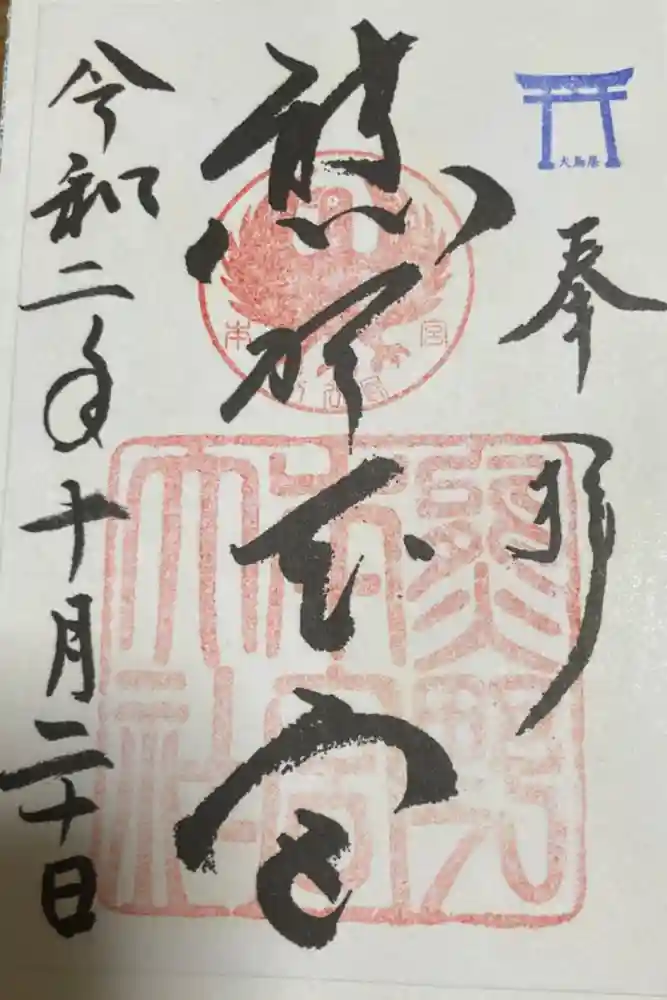 大鳥居
奉拝
熊野本宮
本宮
熊野本宮大社
令和二年十月二十日